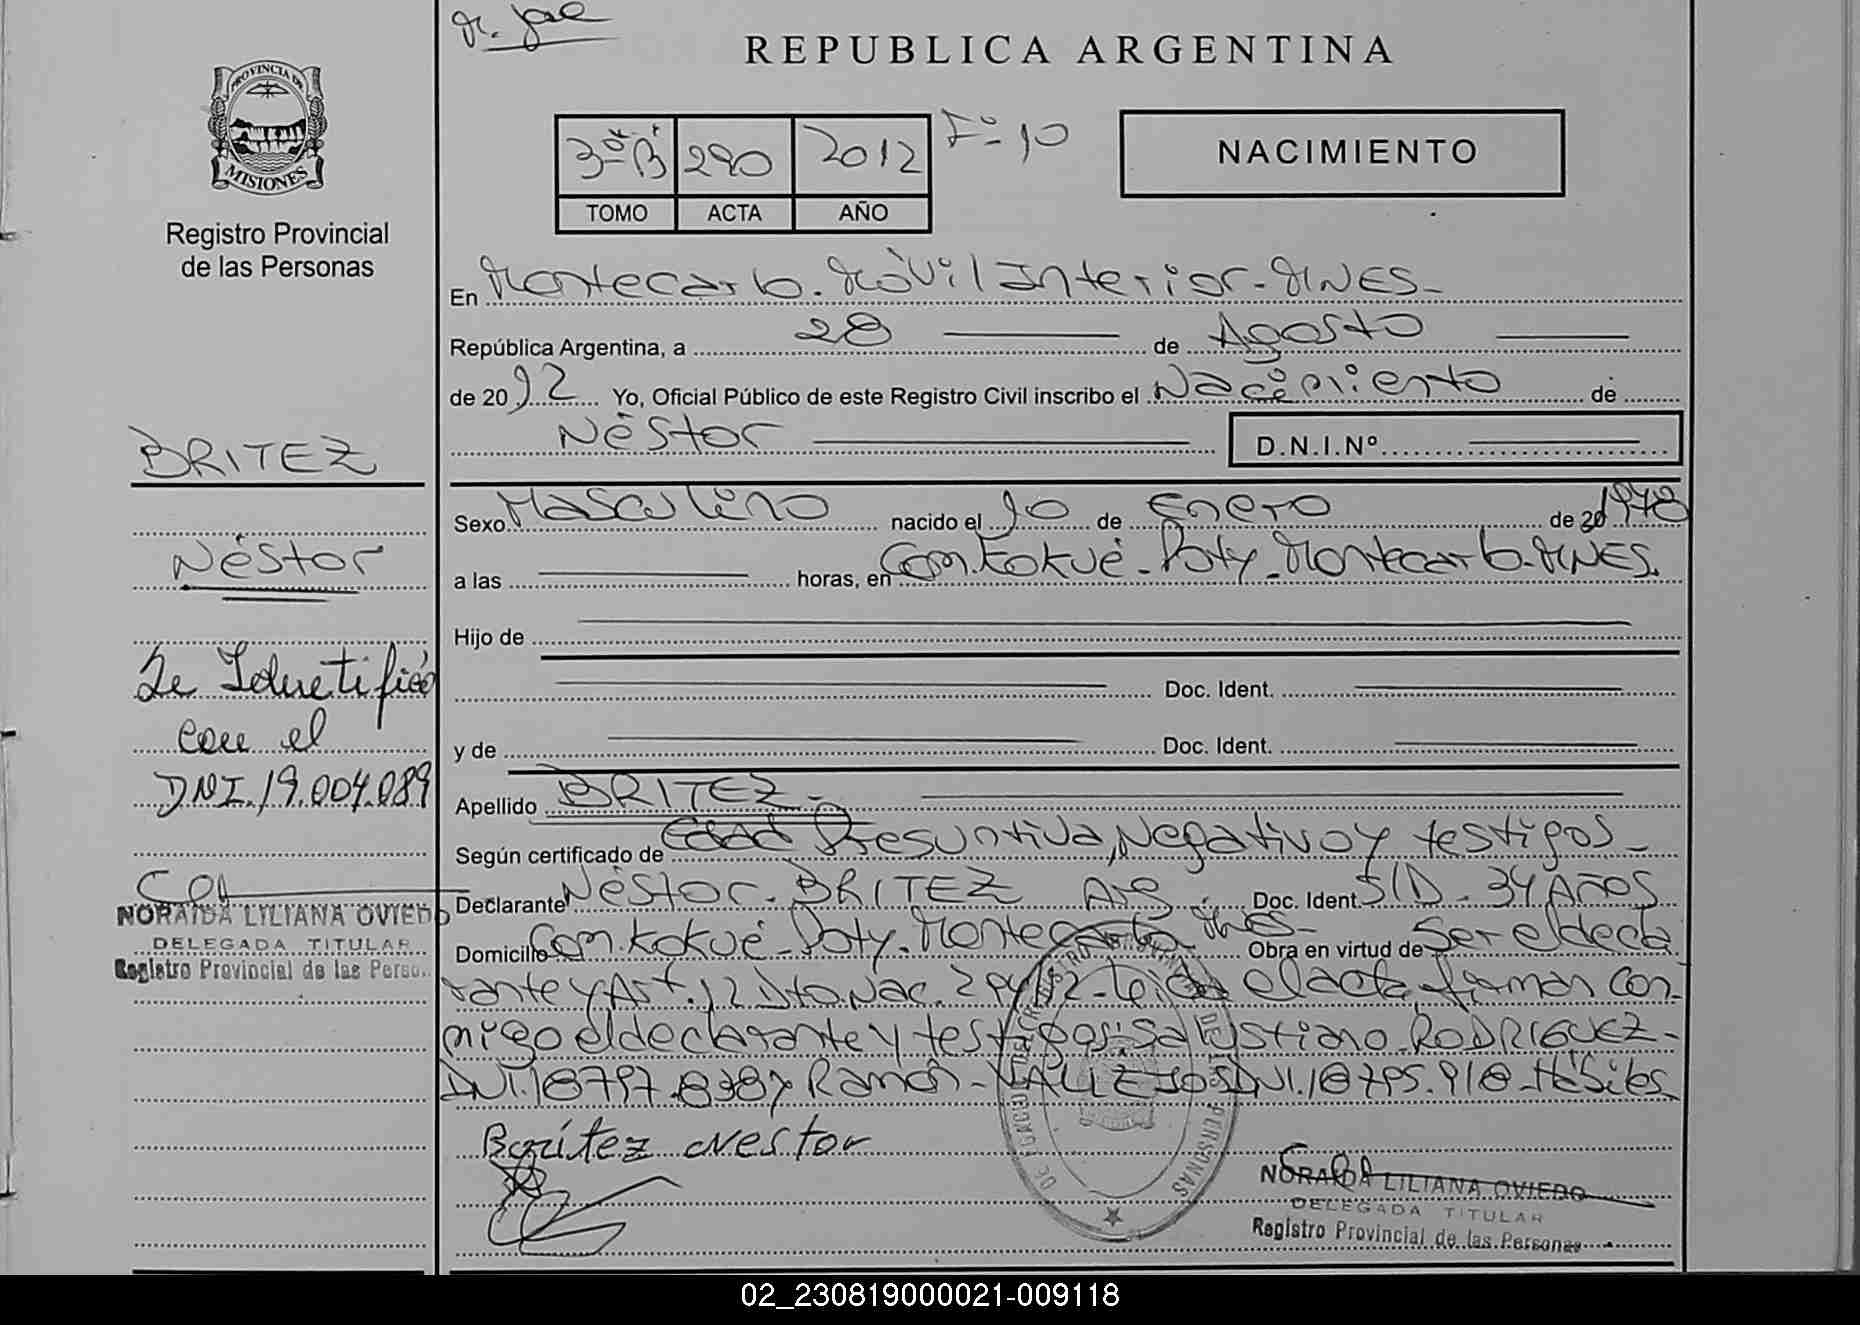 REPUBLICA ARGENTINA
PROVINCIA DE
MISIONES
Registro Provincial
de las Personas
3º B 290 2012 Fº 10
TOMO ACTA AÑO
NACIMIENTO
En Montecarlo. Móvil Interior - MNES -
República Argentina, a 28 de Agosto
de 20 12 Yo, Oficial Público de este Registro Civil inscribo el Nacimiento de
Néstor D.N.I.Nº
BRITEZ
Sexo Masculino nacido el 10 de Enero de 20 1978
Néstor
a las horas, en Com. Kokué - Poty - Montecarlo - MNES.
Hijo de
Se Identificó
Doc. Ident.
con el
y de Doc. Ident.
DNI. 19.004.089
Apellido BRITEZ -
Según certificado de Edad Presuntiva, Negativo y testigos -
Declarante Néstor - BRITEZ Arg. Doc. Ident. S/D - 34 Años
NORAIDA LILIANA OVIEDO
DELEGADA TITULAR
Registro Provincial de las Perso..
Domicilio Com. Kokué - Poty - Montecarlo - MNES - Obra en virtud de Ser el decla
rante y Art. 12 Dto. Nac. 294/12 - leída el acta, firman con-
migo el declarante y testigos: Salustiano RODRIGUEZ -
DNI. 18797.838 y Ramón - VALLEJOS DNI. 18.795.918 - Hábiles
Benítez Nestor
NORAIDA LILIANA OVIEDO
DELEGADA TITULAR
Registro Provincial de las Personas
02_230819000021-009118